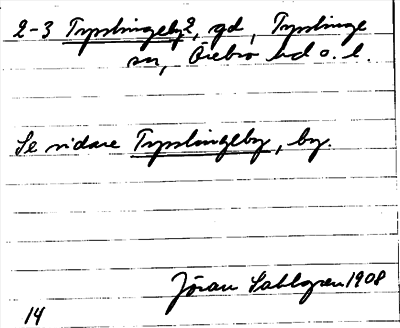 2-3 Tysslingeby?, gd, Tysslinge
sn, Örebro hd o. l.
Se vidare Tysslingeby, by.
Jöran Sahlgren 1908
14